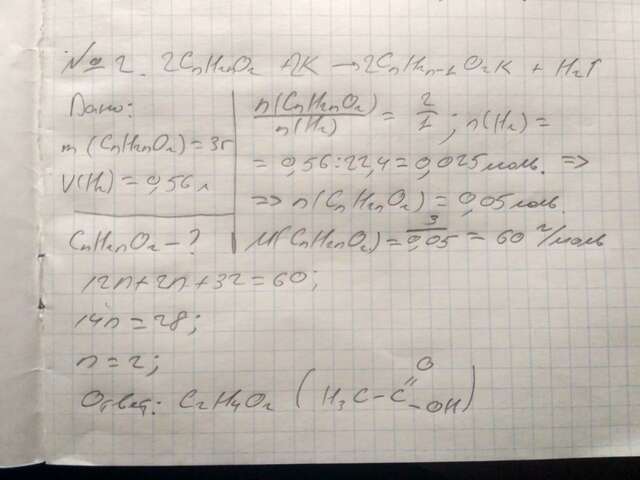 № 2. 2CnH2nO2 + 2K → 2CnH2n-1O2K + H2↑
Дано:
m (CnH2nO2) = 3г
V(H2) = 0,56 л
CnH2nO2 - ?
n(CnH2nO2) / n(H2) = 2/1; n(H2) =
= 0,56:22,4 = 0,025 моль. =>
=> n(CnH2nO2) = 0,05 моль.
M(CnH2nO2) = 3/0,05 = 60 г/моль
12n+2n+32=60;
14n=28;
n=2;
Ответ: C2H4O2 (H3C-C
O
-OH)